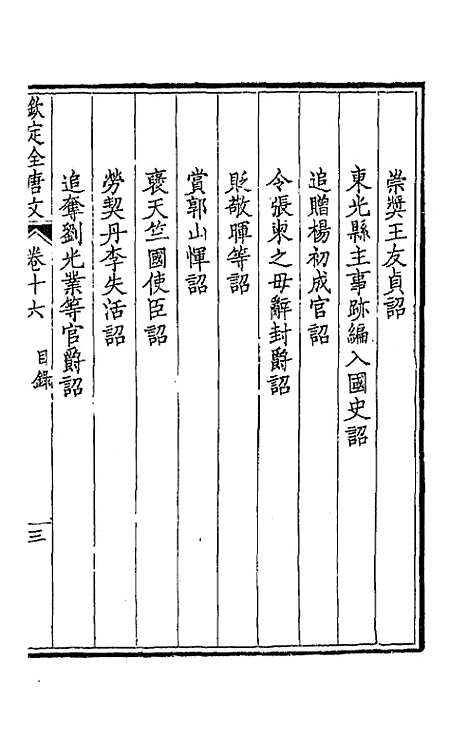 崇奬王友貞詔
東光縣主事跡編入國史詔
追贈楊初成官詔
令張柬之毋辭封爵詔
貶敬暉等詔
賞郭山惲詔
褒天竺國使臣詔
勞契丹李失活詔
追奪劉光業等官爵詔
欽定全唐文 卷十六 目錄 三